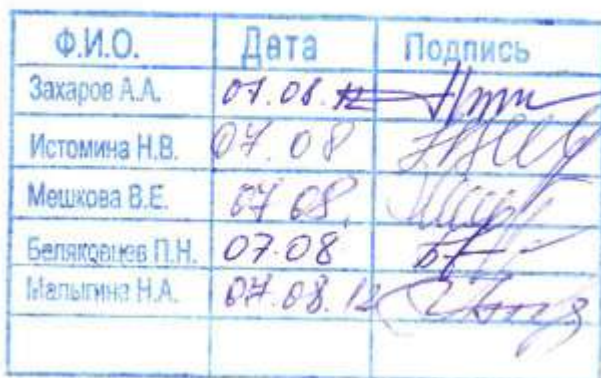 Ф.И.О. Дата Подпись
Захаров А.А. 07.08.12
Истомина Н.В. 07.08
Мешкова В.Е. 07.08.
Беляковцев П.Н. 07.08
Малыгина Н.А. 07.08.12